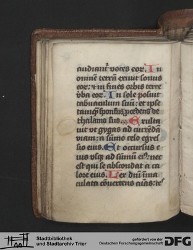 audiantur voces eor. In
omnem terrā exivit sonus
eor. et in fines orbis terre
vba eor. In sole posuit
tabernaculum suū: et ipse
tamqᷓ sponsus pcedens de
thalamo suo. Exulta
vit ut gygas ad currēdā
viam; a summo celo egres
sio eius. Et occursus ei
us usqᷓ ad sūmū eꝰ: nec
est qui se abscondat a ca
lore eius. Lex dni īma
culata convertens aīas:
Stadtbibliothek
und Stadtarchiv Trier
gefördert von der
Deutschen Forschungsgemeinschaft
DFG